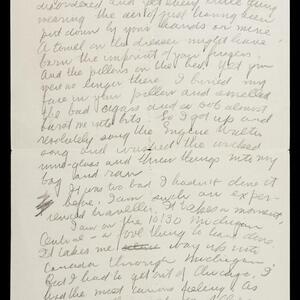 disordered and yet every little thing
wearing the air of just having been
put down by your hands or mine.
A towel on the dresser might have
borne the imprint of your fingers
and the pillow on the bed. Yet you
were no longer there. I buried my
face in your pillow and smelled
the bad cigars and a sob almost
burst me into bits. So I got up and
resolutely sang the
song and washed the wicked
wine-glass and threw things into my
bag and ran.
It was too bad I hadn't done it
before. I am such an exper-
ienced traveller. It takes a moment.
I am on the 10:30 Michigan
Central – a
It takes me way up into
Canada through Michigan.
But I had to get out of Chicago. I
had the most curious feeling as